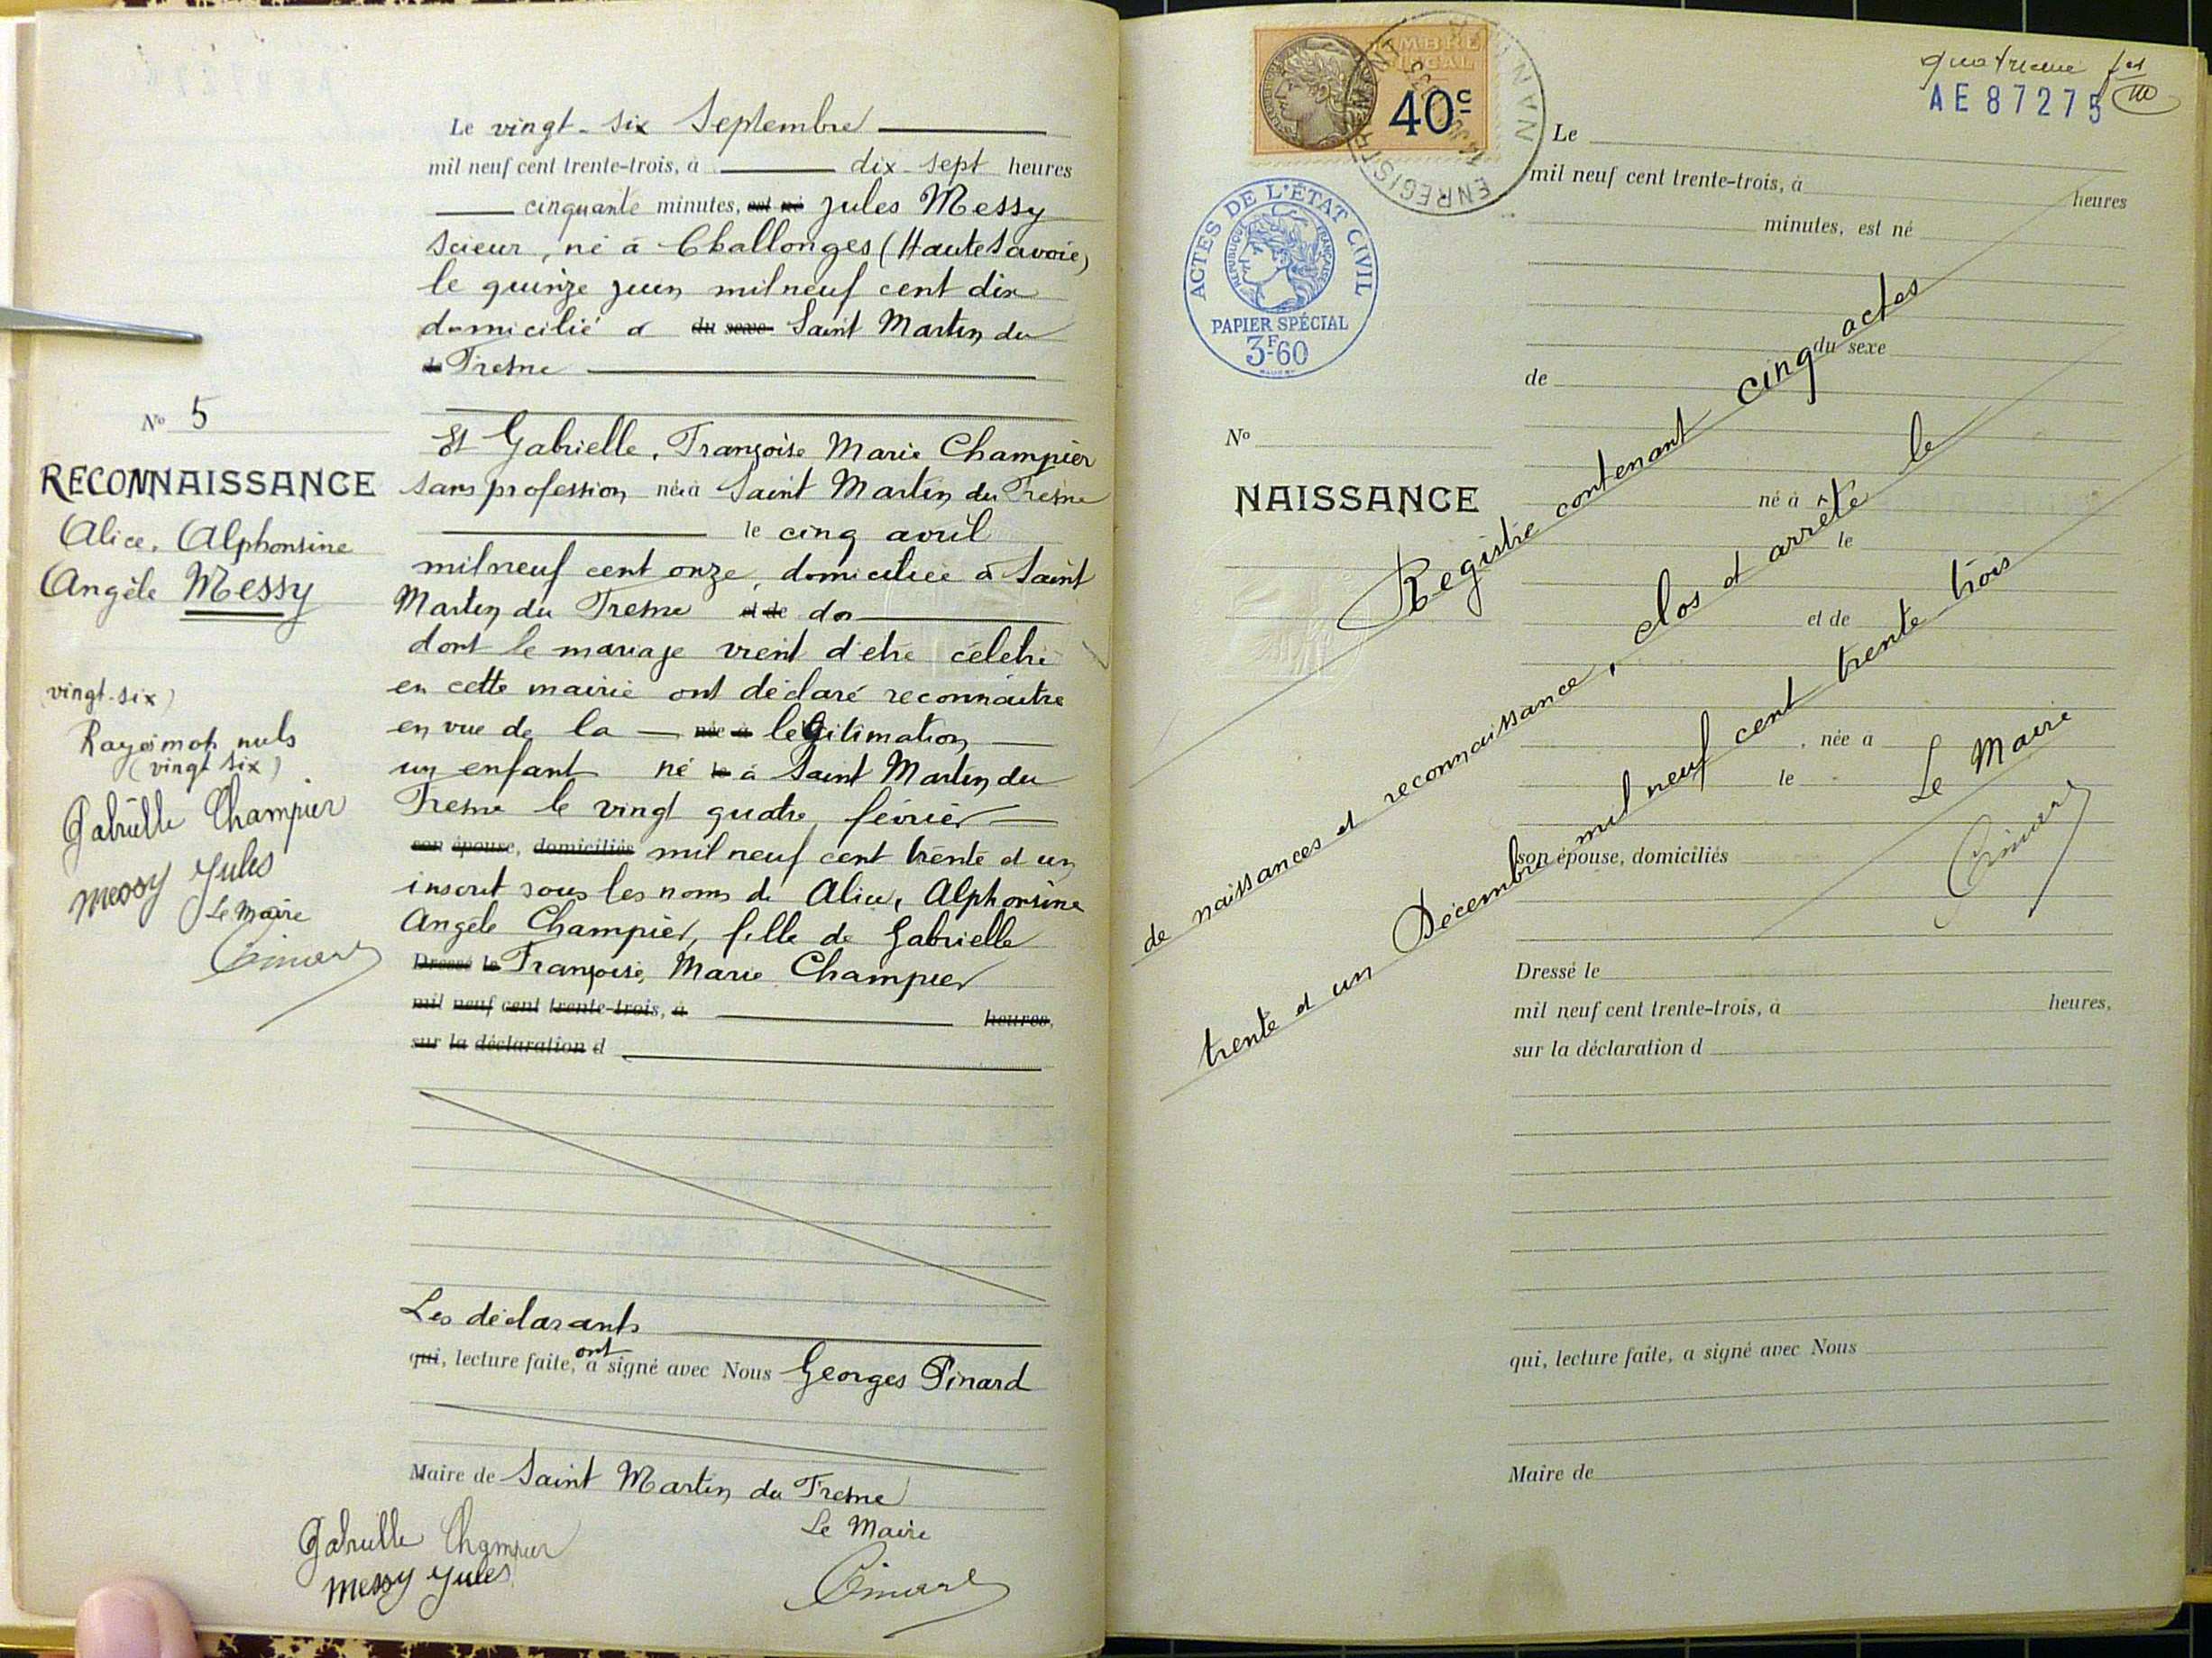 Le vingt-six Septembre
mil neuf cent trente-trois, à dix-sept heures
cinquante minutes, est né Jules Messy
scieur, né à Challonges (Haute Savoie)
le quinze juin mil neuf cent dix
domicilié à du sexe Saint Martin du
de Fresne
Et Gabrielle, Françoise Marie Champier
sans profession née à Saint Martin du Fresne
le cinq avril
mil neuf cent onze, domiciliée à Saint
Martin du Fresne et de
dont le mariage vient d'etre célébré
en cette mairie ont déclaré reconnaitre
en vue de la née à légitimation
un enfant né le à Saint Martin du
Fresne le vingt quatre février
son épouse, domiciliés mil neuf cent trente et un
inscrit sous les noms de Alice, Alphonsine
Angèle Champier, fille de Gabrielle
Dressé le Françoise, Marie Champier
mil neuf cent trente-trois, à heures,
sur la déclaration d
Les déclarants
qui, lecture faite, ont a signé avec Nous Georges Pinard
Maire de Saint Martin du Fresne
Le Maire
Gabrielle Champier
Messy Jules
No 5
RECONNAISSANCE
Alice, Alphonsine
Angèle Messy
(vingt-six)
Rayés mots nuls
(vingt six)
Gabrielle Champier
Messy Jules
Le Maire
TIMBRE
FISCAL
40c
ENREGISTREMENT
quatrieme
AE 87275
ACTES DE L'ÉTAT CIVIL
REPUBLIQUE FRANÇAISE
PAPIER SPÉCIAL
3F60
No
NAISSANCE
Le
mil neuf cent trente-trois, à
heures
minutes, est né
du sexe
de
né à
le
et de
, née à
le
son épouse, domiciliés
Dressé le
mil neuf cent trente-trois, à heures,
sur la déclaration d
qui, lecture faite, a signé avec Nous
Maire de
Registre contenant cinq actes
de naissances et reconnaissance, clos et arrêté le
trente et un Décembre mil neuf cent trente trois
Le Maire